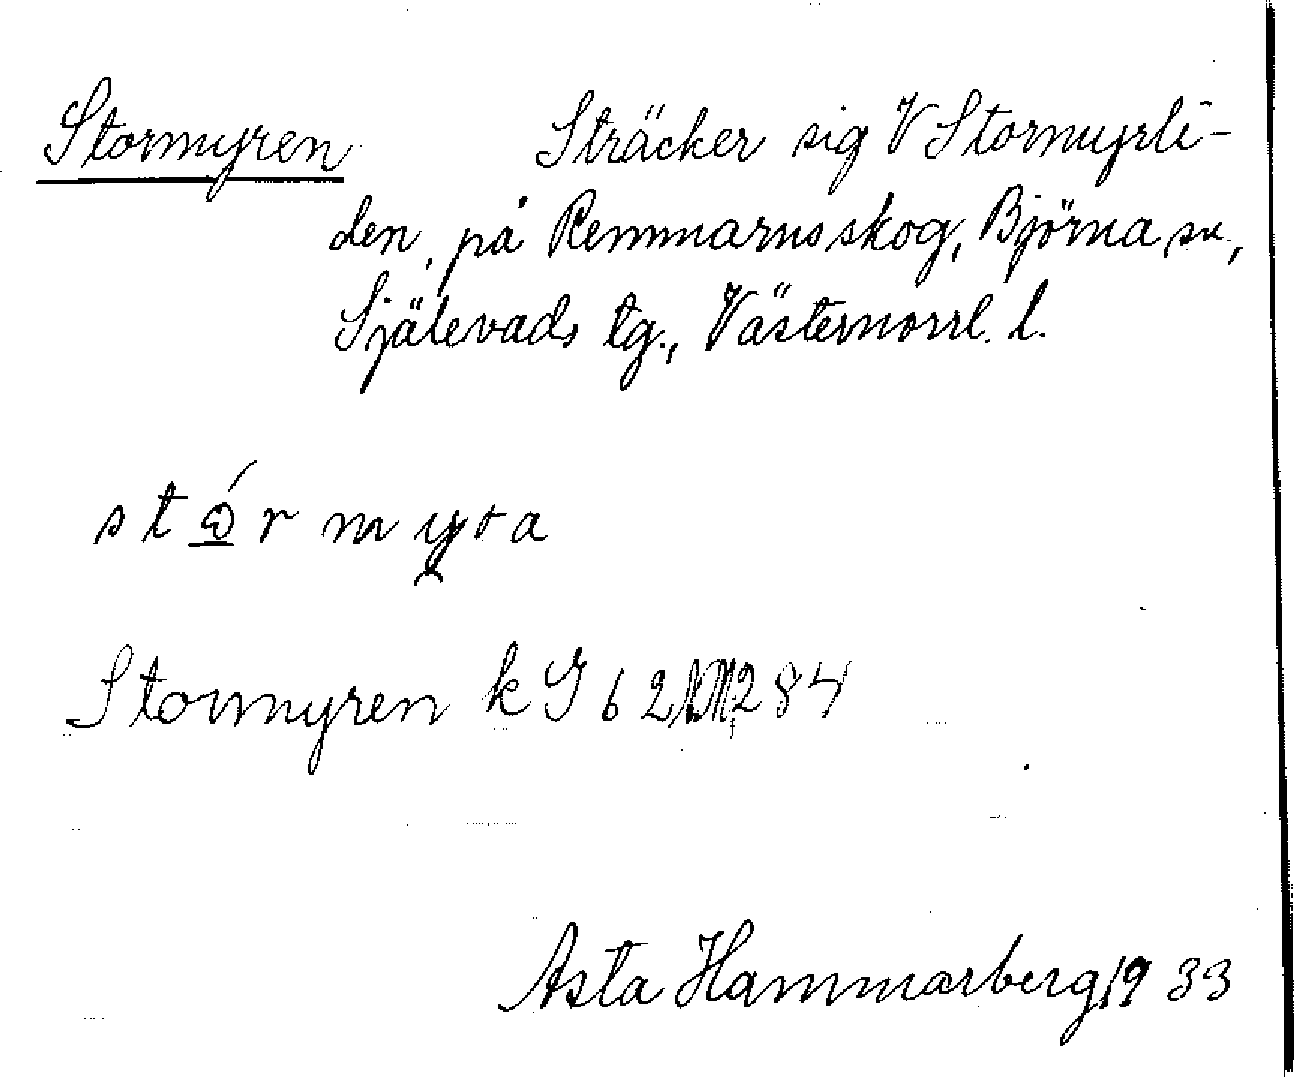 Stormyren Sträcker sig V Stormyrli-
den, på Remmarns skog, Björna sn.,
Själevads tg., Västernorrl. l.
stårmyra
Stormyren k J 62 284
Asta Hammarberg 1933